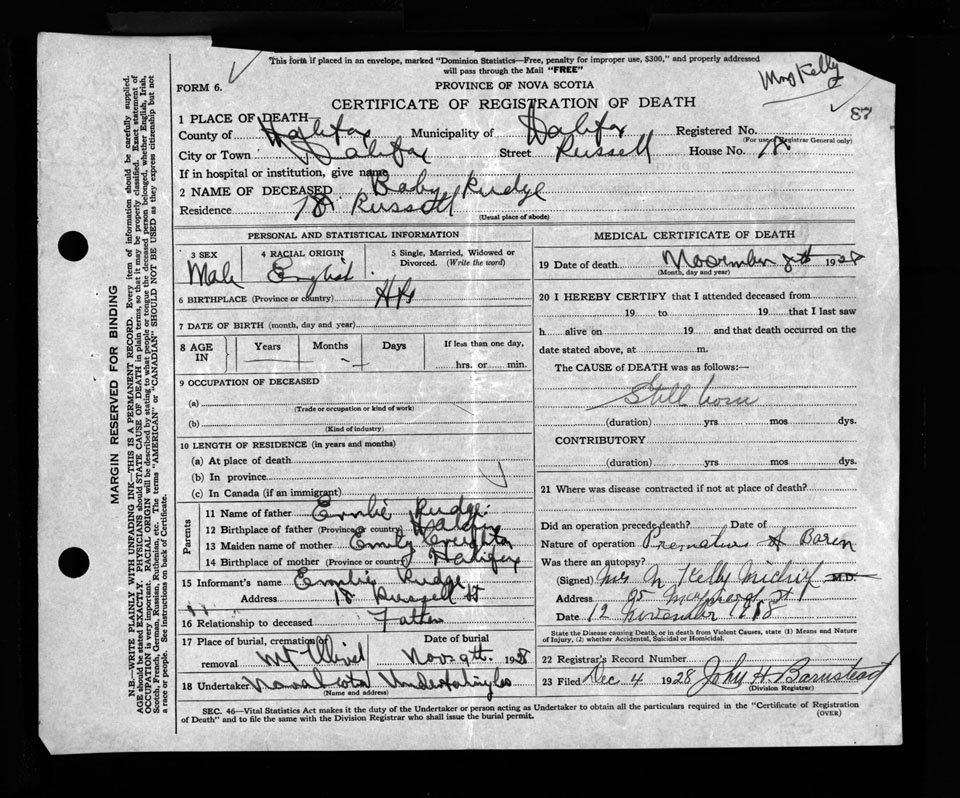 This form if placed in an envelope, marked "Dominion Statistics—Free, penalty for improper use, $300," and properly addressed
will pass through the Mail "FREE"
Mrs Kelly
FORM 6.
PROVINCE OF NOVA SCOTIA
CERTIFICATE OF REGISTRATION OF DEATH
87
1 PLACE OF DEATH
County of Halifax Municipality of Halifax Registered No.
(For use of Registrar General only)
City or Town Halifax Street Russell House No. 18
If in hospital or institution, give name
2 NAME OF DECEASED Baby Rudge
Residence 18 Russell
(Usual place of abode)
PERSONAL AND STATISTICAL INFORMATION
3 SEX 4 RACIAL ORIGIN 5 Single, Married, Widowed or Divorced. (Write the word)
Male English
6 BIRTHPLACE (Province or country) Hfx
7 DATE OF BIRTH (month, day and year)
8 AGE IN Years Months Days If less than one day,
hrs. or min.
9 OCCUPATION OF DECEASED
(a)
(Trade or occupation or kind of work)
(b)
(Kind of industry)
10 LENGTH OF RESIDENCE (in years and months)
(a) At place of death
(b) In province
(c) In Canada (if an immigrant)
Parents
11 Name of father Rudge
12 Birthplace of father (Province or country) Halifax
13 Maiden name of mother Emily Creighton
14 Birthplace of mother (Province or country) Halifax
15 Informant's name Rudge
Address 18 Russell St
16 Relationship to deceased Father
17 Place of burial, cremation or removal Mt Olivet Date of burial Nov 9th 1928
18 Undertaker Nova Scotia Undertaking Co
(Name and address)
MEDICAL CERTIFICATE OF DEATH
19 Date of death November 8th 1928
(Month, day and year)
20 I HEREBY CERTIFY that I attended deceased from
19 to 19 that I last saw
h alive on 19 and that death occurred on the
date stated above, at m.
The CAUSE of DEATH was as follows:—
Still born
(duration) yrs mos dys.
CONTRIBUTORY
(duration) yrs. mos. dys.
21 Where was disease contracted if not at place of death?
Did an operation precede death? Date of
Nature of operation Premature Boren
Was there an autopsy?
(Signed) Mrs N Kelly M.D.
Address 95 St
Date 12 November 1928
State the Disease causing Death, or in death from Violent Causes, state (1) Means and Nature
of Injury, (2) whether Accidental, Suicidal or Homicidal.
22 Registrar's Record Number
23 Filed Dec 4 1928 John H. Barnstead
(Division Registrar)
SEC. 46—Vital Statistics Act makes it the duty of the Undertaker or person acting as Undertaker to obtain all the particulars required in the "Certificate of Registration
of Death" and to file the same with the Division Registrar who shall issue the burial permit.
(OVER)
MARGIN RESERVED FOR BINDING
N.B.—WRITE PLAINLY WITH UNFADING INK—THIS IS A PERMANENT RECORD. Every item of information should be carefully supplied.
AGE should be stated EXACTLY. PHYSICIANS should STATE CAUSE OF DEATH in plain terms, so that it may be properly classified. Exact statement of
OCCUPATION is very important. RACIAL ORIGIN will be described by stating to what people or tongue the deceased person belonged, whether English, Irish,
Scotch, French, German, Russian, Ruthenian, etc. The terms "AMERICAN" or "CANADIAN" SHOULD NOT BE USED as they express citizenship but not
a race or people. See instructions on back of Certificate.